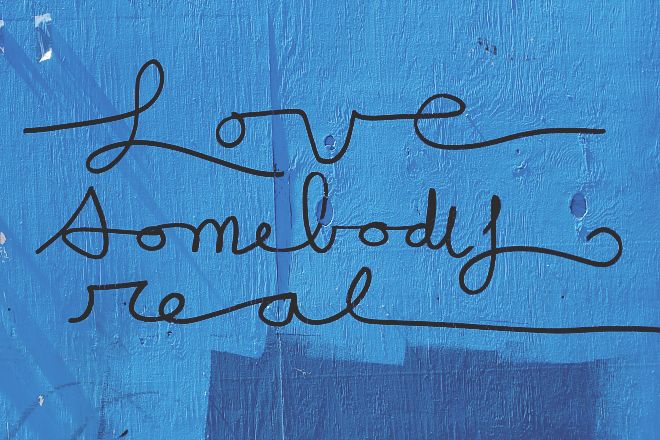 Love
somebody
real